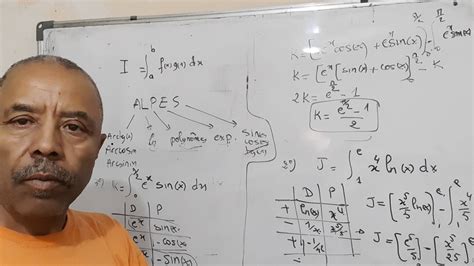 I = ∫_a^b f(x)g(x) dx
ALPES
Arctg(x)
Arccos(x)
Arcsin(x)
ln
polynômes
exp.
sin(x)
cos(x)
K = ∫_0^{π/2} e^x sin(x) dx
D P
e^x sin(x)
e^x -cos(x)
e^x -sin(x)
K = [-e^x cos(x) + e^x sin(x)]_0^{π/2} - ∫_0^{π/2} e^x sin(x)
K = [e^x [sin(x) + cos(x)]]_0^{π/2} - K
2K = e^{π/2} - 1
K = (e^{π/2} - 1)/2
J = ∫_1^e x^4 ln(x) dx
D P
+ ln(x) x^4
J = [x^5/5 ln(x)]_1^e - ∫_1^e x^4/5
J = [e^5/5] - [x^5/25]_1^e